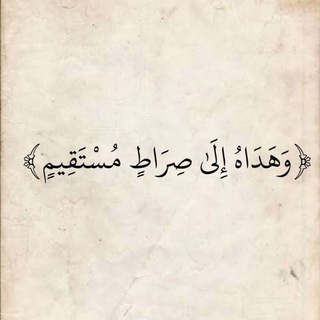 ﴿وَهَدَاهُ إِلَىٰ صِرَاطٍ مُسْتَقِيمٍ﴾